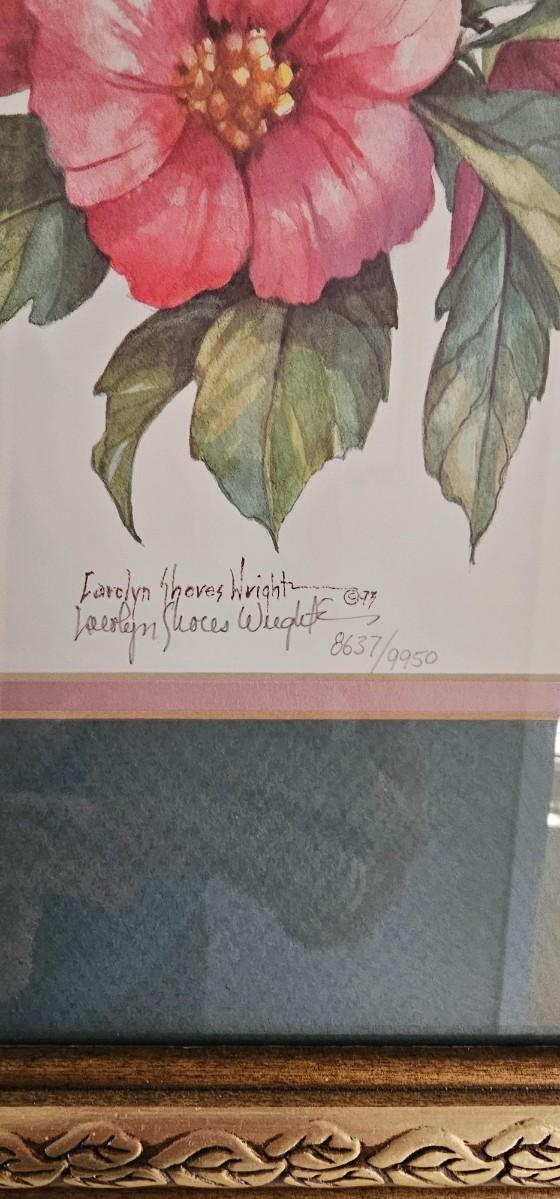 Carolyn Shores Wright ©93
Carolyn Shores Wright
8637/9950